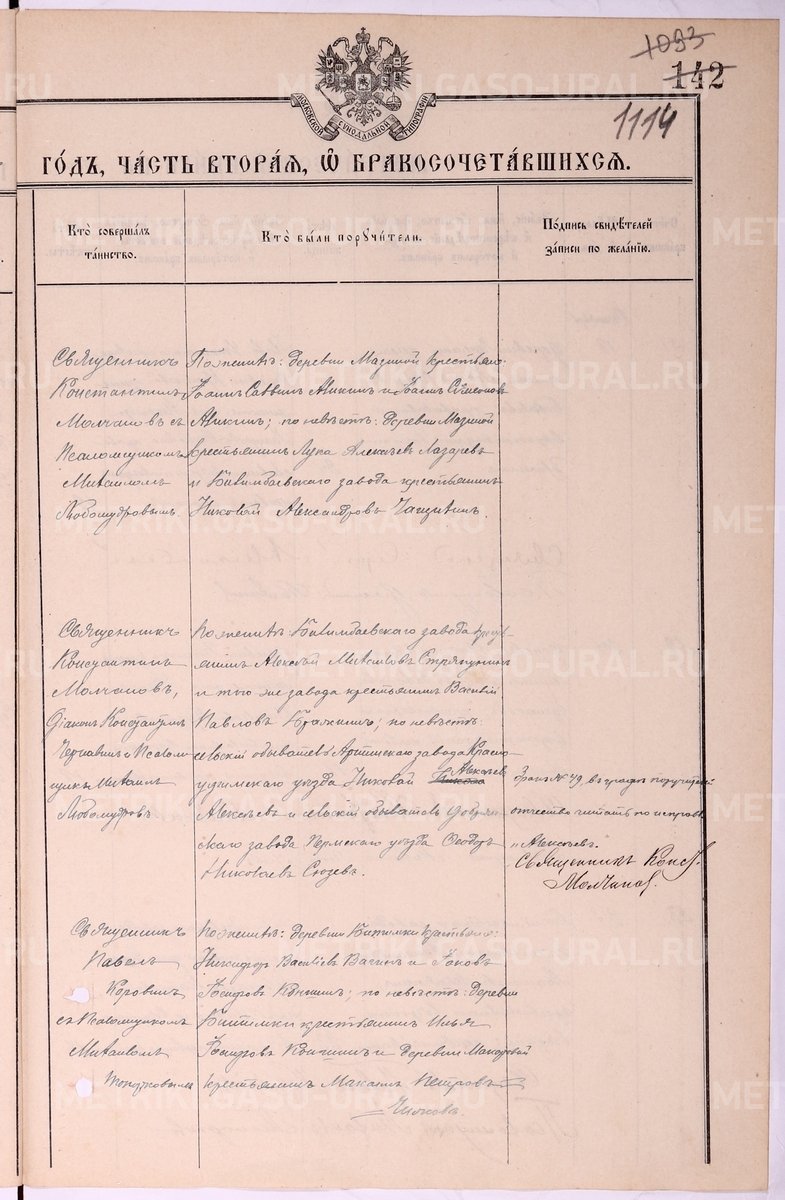 1093
142
1114
МОСКОВСКОЙ СУНОДАЛЬНОЙ ТИПОГРАФІИ
ГО́ДЪ, ЧА́СТЬ ВТОРА́Я, Ѡ҆ БРАКОСОЧЕТА́ВШИХСѦ.
Кто̀ соверша́лъ
та́инство.
Кто̀ бы́ли порꙋчи́тели.
По́дпись свидѣ́телей
за́писи по жела́нїю.
Священникъ
Константинъ
Молчановъ съ
Псаломщикомъ
Михаиломъ
Любомудровымъ.
По женихѣ: деревни Мазиной крестьяне
Іоаннъ Саввинъ Аникинъ и Іоаннъ Сѵмеоновъ
Аникинъ; по невѣстѣ: деревни Мазиной
крестьянинъ Лука Алексѣевъ Лазаревъ
и Билимбаевскаго завода крестьянинъ
Николай Александровъ Чащинъ.
Священникъ
Константинъ
Молчановъ,
Діаконъ Константинъ
и Псалом
щикъ Михаилъ
Любомудровъ
По женихѣ: Билимбаевскаго завода крест
янинъ Алексѣй Михаиловъ Стряпунинъ
и того же завода крестьянинъ Василій
Павловъ; по невѣстѣ:
сельскій обыватель Артинскаго завода Красно
уфимскаго уѣзда Николай Алексѣевъ
Алексѣевъ и сельскій обыватель Добрян
скаго завода Пермскаго уѣзда Ѳеодоръ
Николаевъ Сюзевъ.
№ 49, въ графѣ поручителей
отчество читать по исправл.
„Алексѣевъ.
Священникъ Конст.
Молчановъ.
Священникъ
Павелъ
Коровинъ
съ Псаломщикомъ
Михаиломъ
По женихѣ: деревни Битимки крестьяне:
Никифоръ Василіевъ Вагинъ и Іаковъ
Іосифовъ Конинъ; по невѣстѣ: деревни
Битимки крестьянинъ Илья
Іосифовъ Конинъ и деревни Макаровой
крестьянинъ Петровъ
METRIKI.GASO-URAL.RU